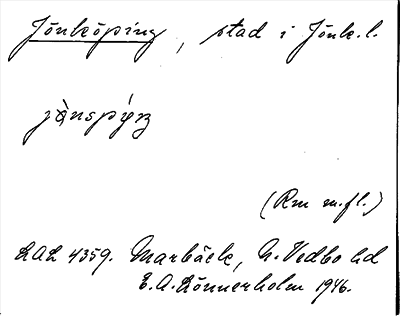 Jönköping, stad i Jönk.l.
jànspýŋ
(Rm m.fl.)
ULMA 4359. Marbäck, N. Vedbo hd
E. A. Lönnerholm 1946.